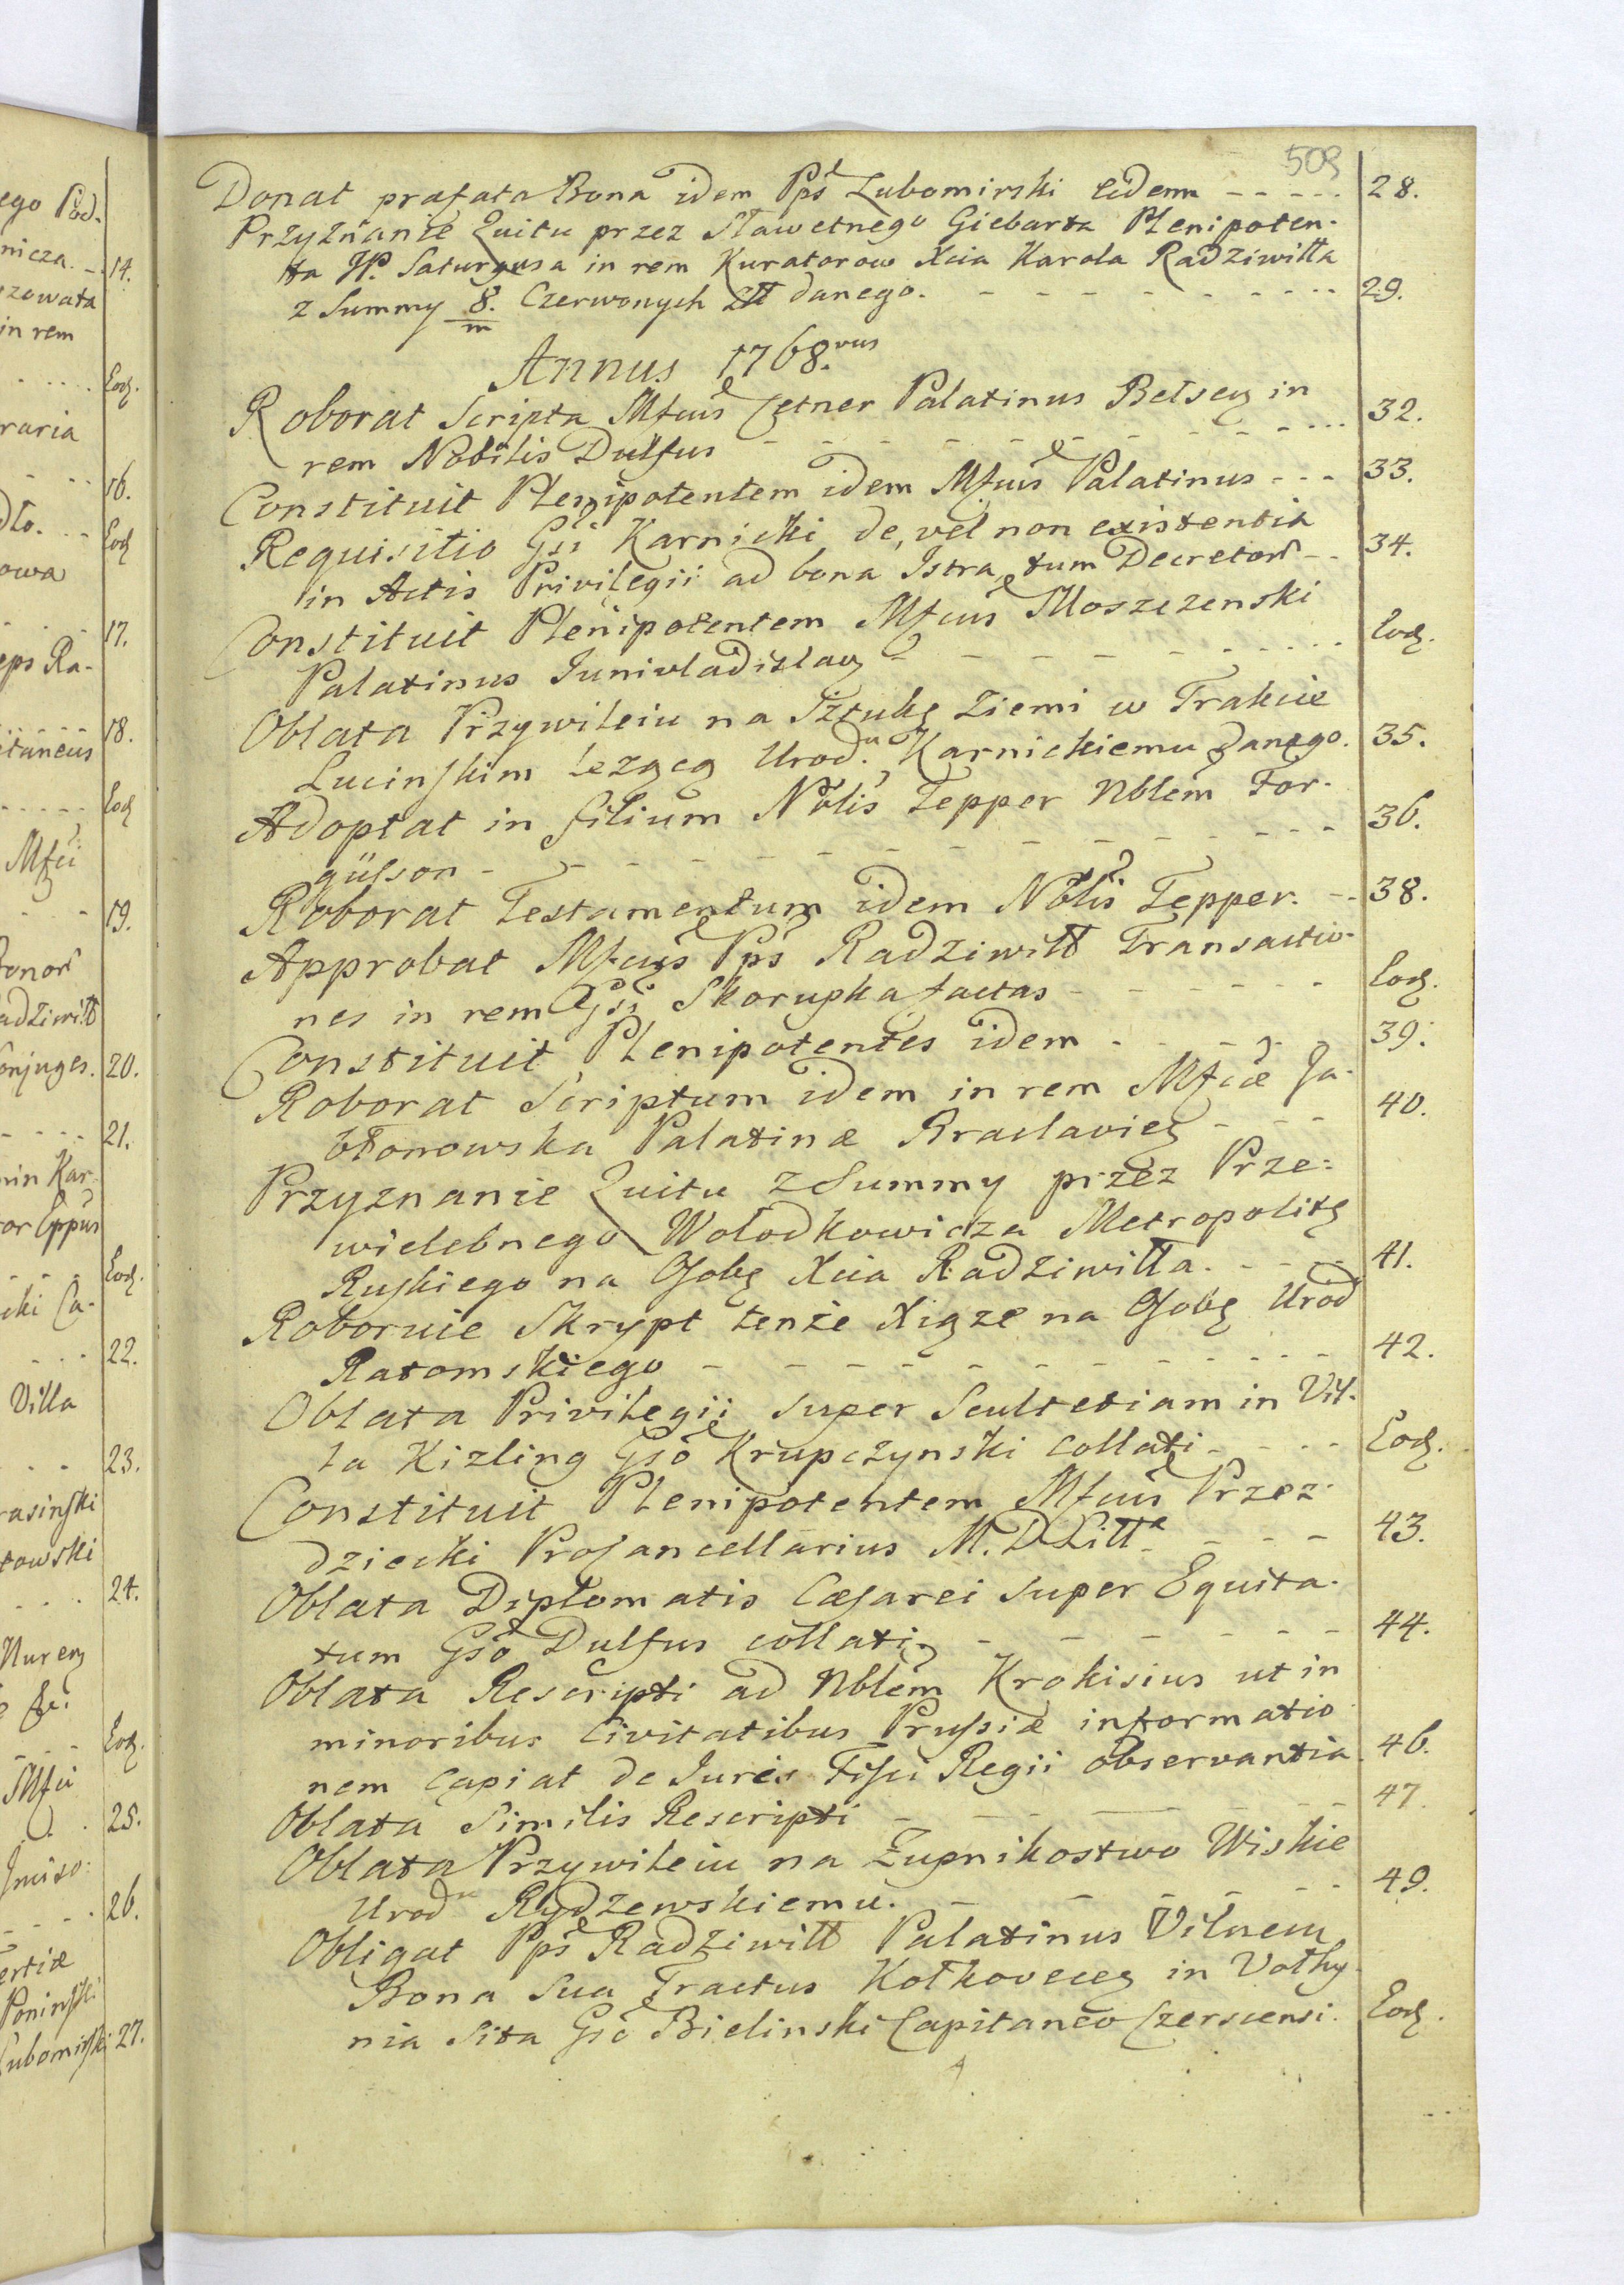 509
Donat præfata Bona idem Pps Lubomirski eidem ----- 28.
Przyznanie Quitu przez Sławetnego Giebarta Plenipoten-
ta JP. Saturgusa in rem Kuratorow Xcia Karola Radziwiłła
z Summy 8/m. Czerwonych Złł danego. - - - - 29.
Annus 1768.vus
Roborat Scripta Mfcus Cetner Palatinus Belsen in
rem Nobilis Dulfus - - - - 32.
Constituit Plenipotentem idem Mfcus Palatinus - - - 33.
Requisitio Gsi Karnicki de, vel non existentia
in Actis Privilegii ad bona Istra, tum Decretor - - 34.
Constituit Plenipotentem Mfcus Moszczenski
Palatinus Junivladislaven - - - - Eod.
Oblata Przywileiu na Sztukę Ziemi w Trakcie
Lucinskim lezącą Urod.u Karnickiemu danego. 35.
Adoptat in filium Nolis Tepper Nblem For-
gülson - - - - 36.
Roborat Testamentum idem Nolis Tepper. - - 38.
Approbat Mfcus Pps Radziwiłł Transactio-
nes in rem Gsi Skorupka factas - - - - Eod.
Constituit Plenipotentes idem - - - - 39.
Roborat Scriptum idem in rem Mfcæ Ja-
błonowska Palatinæ Braclavien - - - 40.
Przyznanie Quitu z Summy przez Prze-
wielebnego Wołodkowicza Metropolitę
Ruskiego na Osobę Xcia Radziwiłła. - - - - 41.
Roboruie Skrypt tenże Xiąże na Osobę Urod
Ratomskiego - - - - 42.
Oblata Privilegii super Scultetiam in Vil-
la Kizling Gso Krupczynski collati - - - - Eod.
Constituit Plenipotentem Mfcus Przez-
dziecki Procancellarius M. D. Litt. - - - 43.
Oblata Diplomatis Cæsarei super Equita-
tum Gso Dulfus collati - - - - 44.
Oblata Rescripti ad Nblem Krokisius ut in
minoribus Civitatibus Prussiæ informatio
nem capiat de Juris Fisci Regii observantia 46.
Oblata Similis Rescripti - - - - 47.
Oblata Przywileiu na Żupnikostwo Wiskie
Urod.u Rydzewskiemu. - - - - 49.
Obligat Pps Radziwiłł Palatinus Vilnen
Bona sua Tractus Kołkovecen in Volhy-
nia sita Gso Bielinski Capitaneo Czersciensi. Eod.